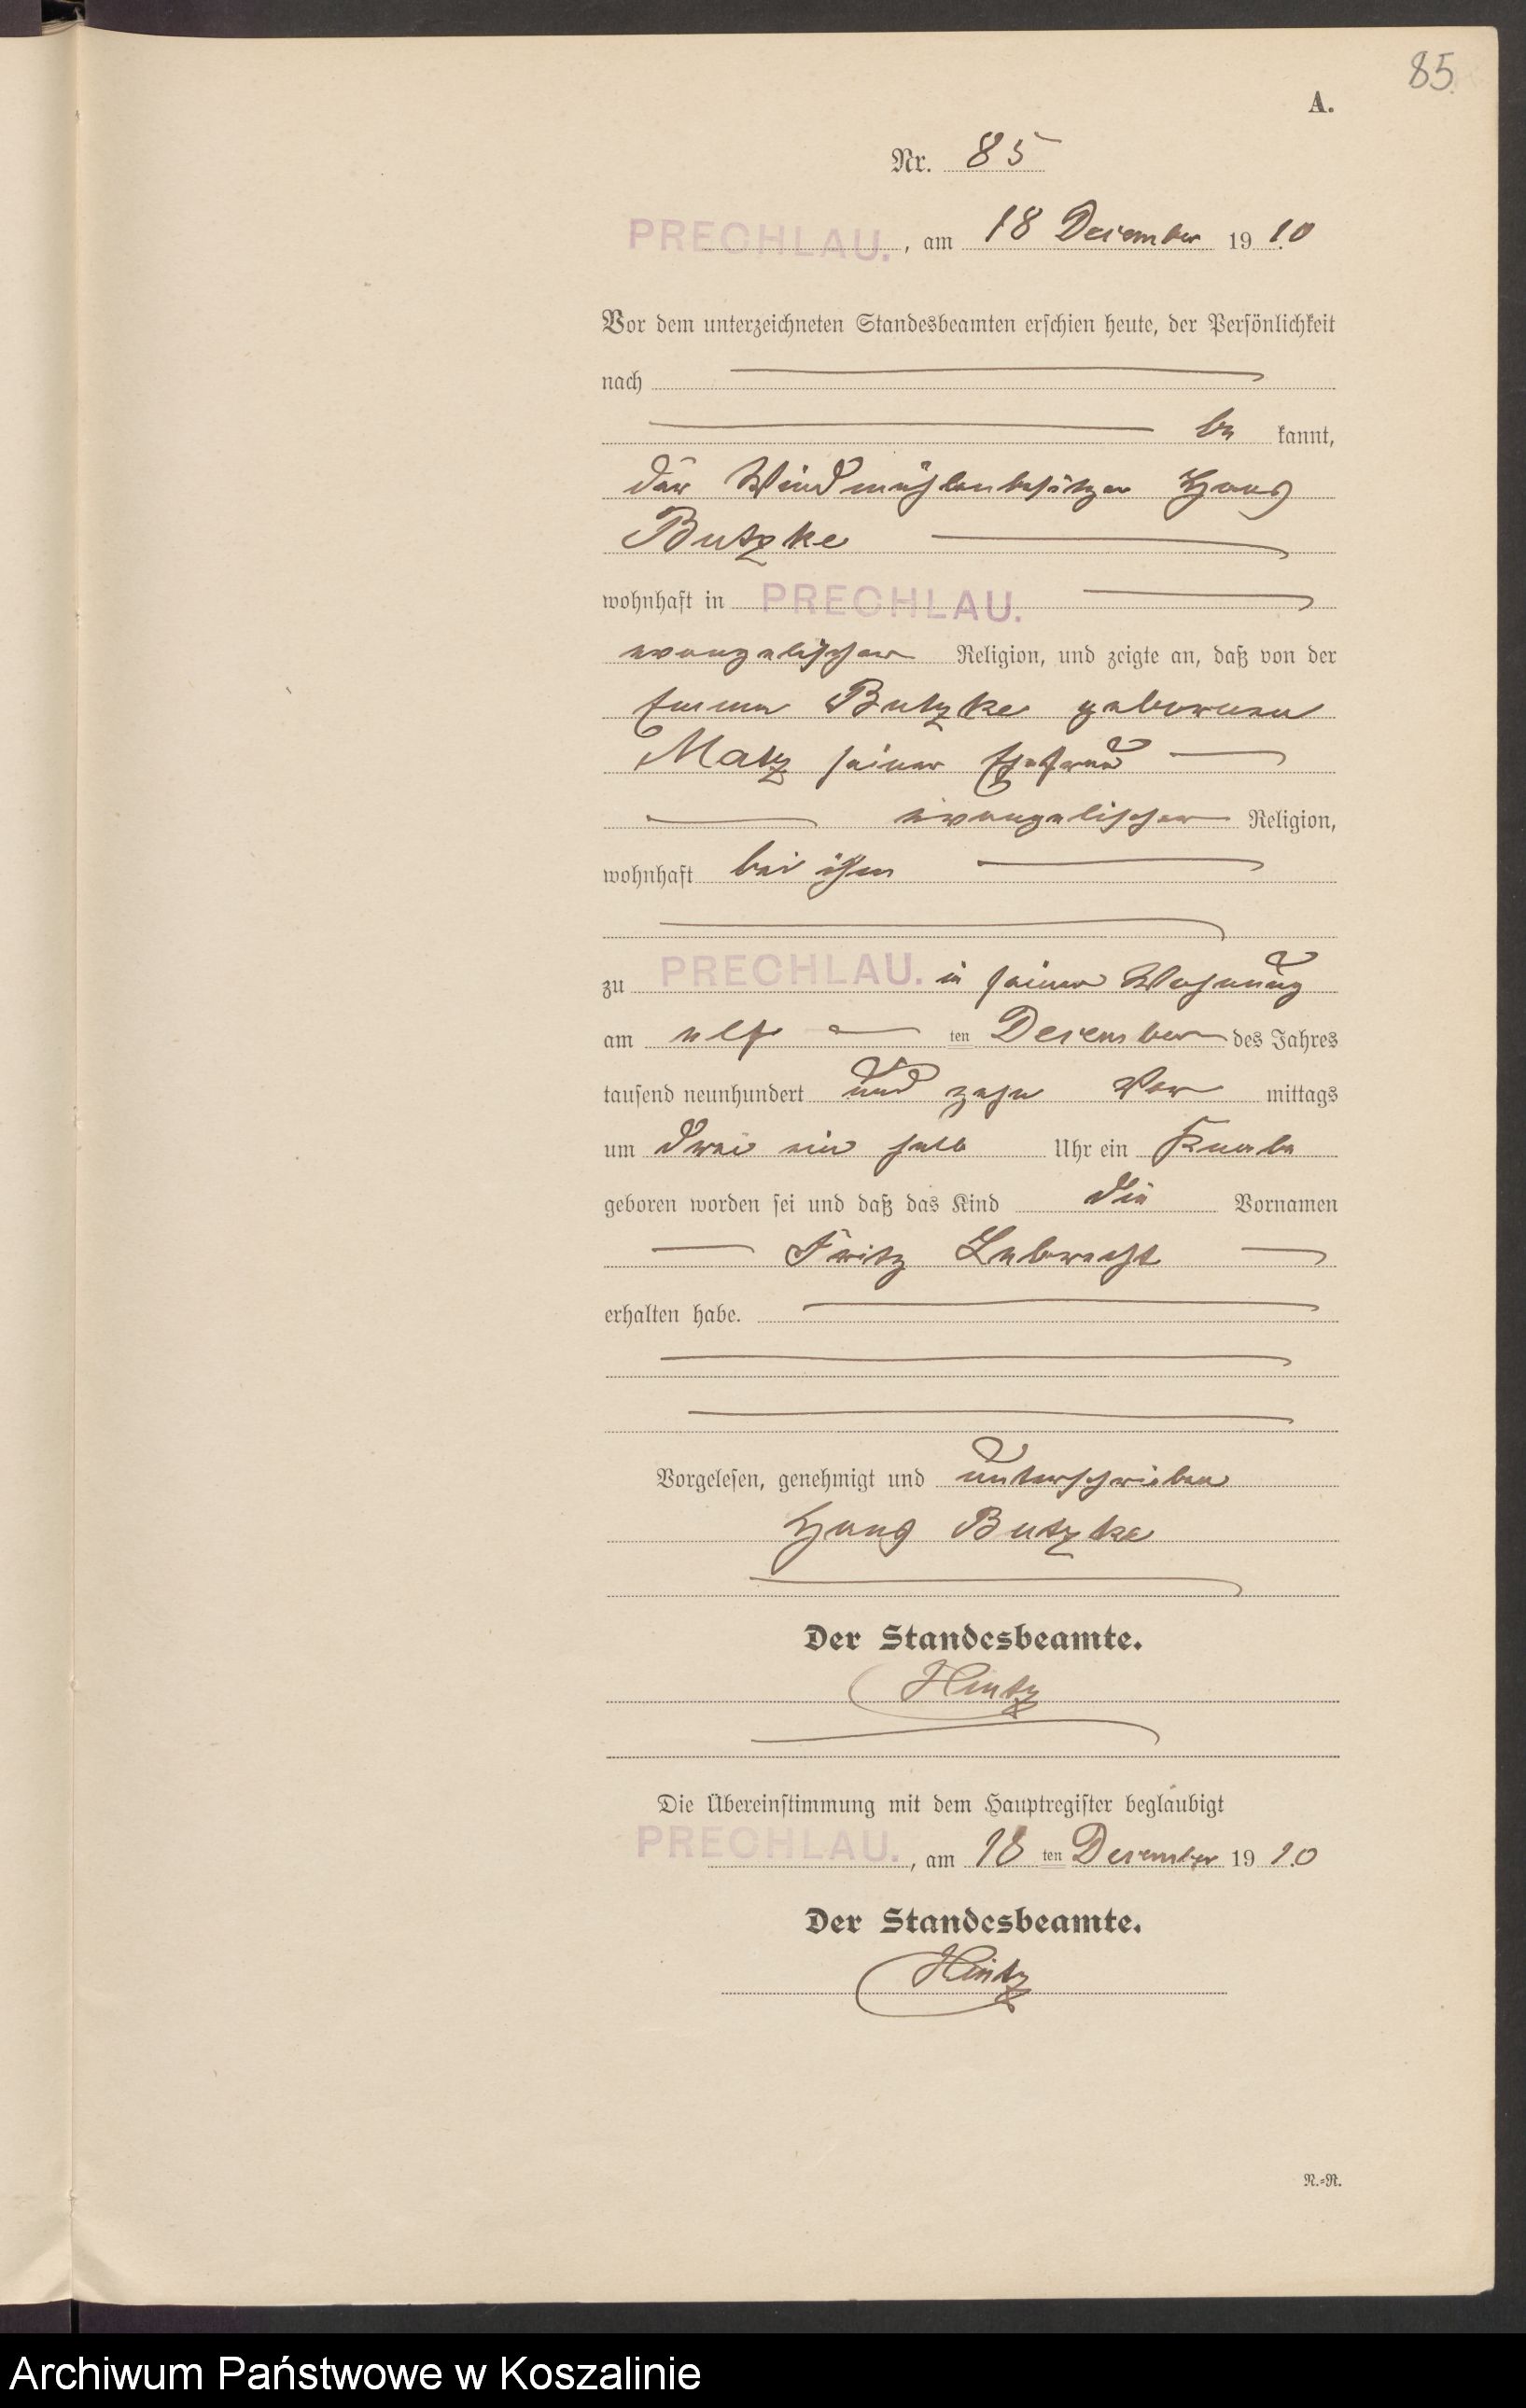 85
A.
Nr. 85
PRECHLAU. , am 18 Dezember 19 10
Vor dem unterzeichneten Standesbeamten erschien heute, der Persönlichkeit
nach
be kannt,
der Windmühlenbesitzer Hans
Butzke
wohnhaft in PRECHLAU.
evangelischer Religion, und zeigte an, daß von der
Emma Butzke geborenen
Matz seiner Ehefrau
evangelischer Religion,
wohnhaft bei ihm
zu PRECHLAU. in seiner Wohnung
am elf ten Dezember des Jahres
tausend neunhundert und zehn Vor mittags
um drei ein halb Uhr ein Knabe
geboren worden sei und daß das Kind die Vornamen
Fritz Lebrecht
erhalten habe.
Vorgelesen, genehmigt und unterschrieben
Hans Butzke
Der Standesbeamte.
Hintz
Die Übereinstimmung mit dem Hauptregister beglaubigt
PRECHLAU. , am 18 ten Dezember 19 10
Der Standesbeamte.
Hintz
N.=N.
Archiwum Państwowe w Koszalinie